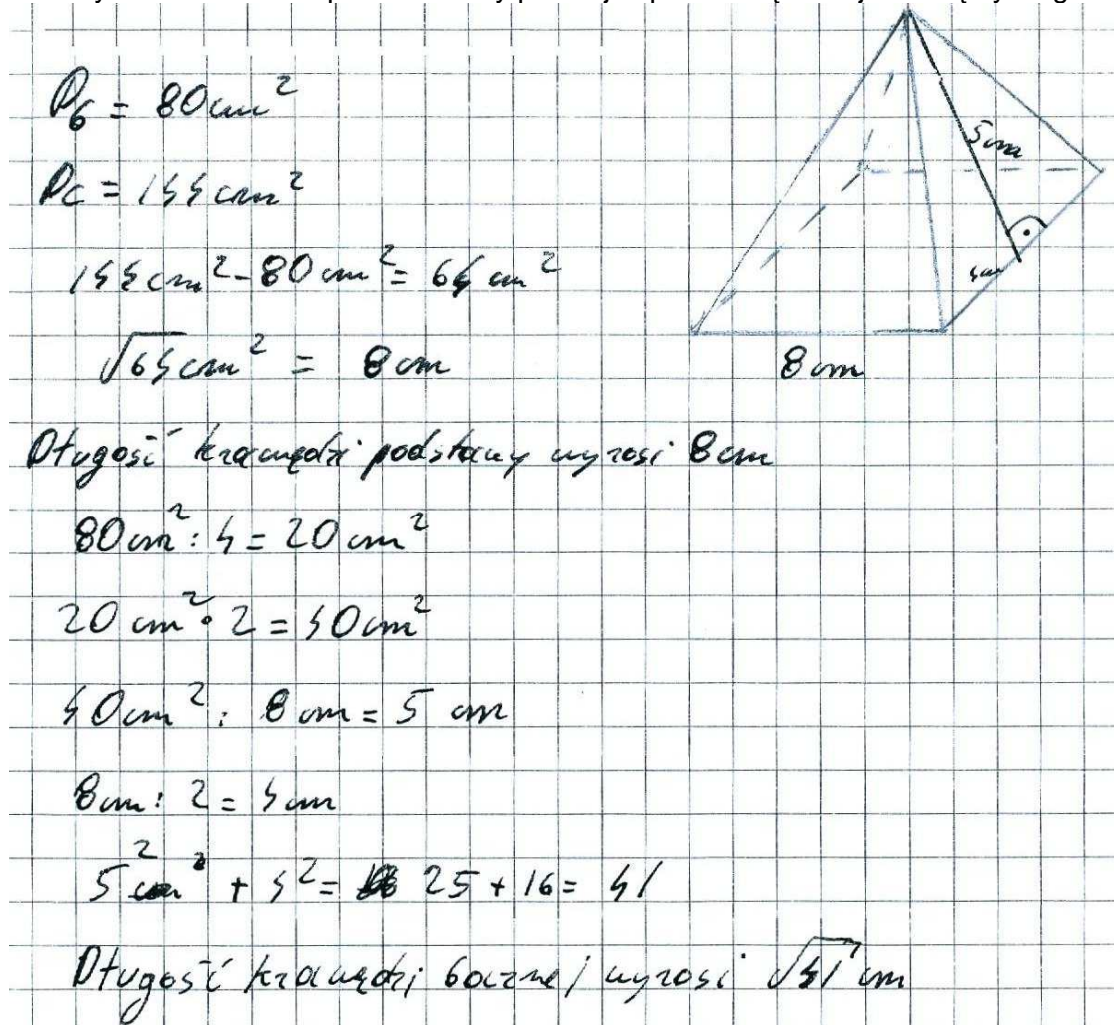 P_b = 80 cm²
P_c = 144 cm²
144 cm² - 80 cm² = 64 cm²
√64 cm² = 8 cm
Długość krawędzi podstawy wynosi 8 cm
80 cm² : 4 = 20 cm²
20 cm² · 2 = 40 cm²
40 cm² : 8 cm = 5 cm
8 cm : 2 = 4 cm
5² + 4² = 25 + 16 = 41
Długość krawędzi bocznej wynosi √41 cm
5 cm
4 cm
8 cm